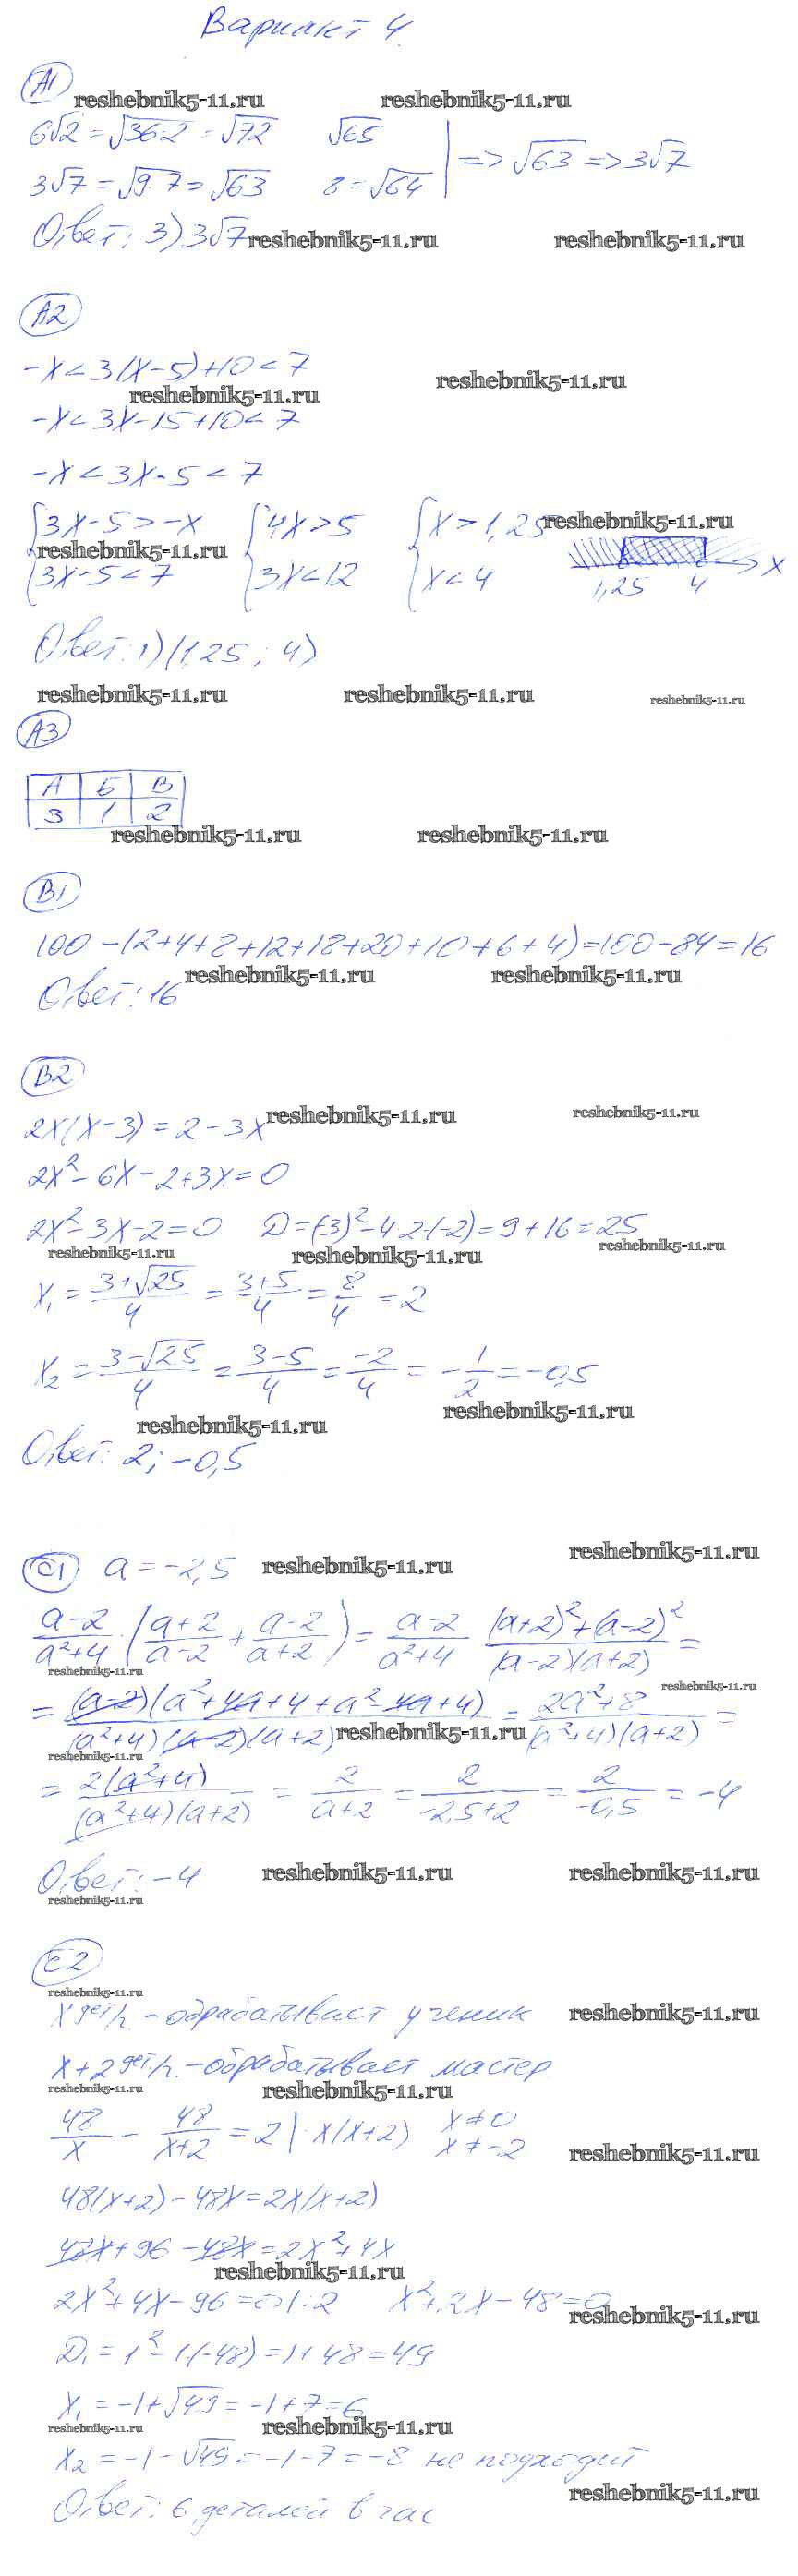 Вариант 4.
А1
reshebnik5-11.ru reshebnik5-11.ru
6√2 = √36·2 = √72 √65
3√7 = √9·7 = √63 8 = √64 => √63 => 3√7
Ответ: 3) 3√7
reshebnik5-11.ru reshebnik5-11.ru
А2
-x < 3(x-5)+10 < 7
reshebnik5-11.ru reshebnik5-11.ru
-x < 3x-15+10 < 7
-x < 3x-5 < 7
{3x-5 > -x {4x > 5 {x > 1,25 reshebnik5-11.ru
reshebnik5-11.ru
{3x-5 < 7 {3x < 12 {x < 4 1,25 4 x
Ответ: 1) (1,25; 4)
reshebnik5-11.ru reshebnik5-11.ru reshebnik5-11.ru
А3
А Б В
3 1 2
reshebnik5-11.ru reshebnik5-11.ru
В1
100 - (2+4+8+12+18+20+10+6+4) = 100-84 = 16
reshebnik5-11.ru reshebnik5-11.ru
Ответ: 16
В2
2x(x-3) = 2-3x reshebnik5-11.ru reshebnik5-11.ru
2x²-6x-2+3x=0
2x²-3x-2=0 D=(-3)²-4·2·(-2)=9+16=25
reshebnik5-11.ru reshebnik5-11.ru reshebnik5-11.ru
x₁ = (3+√25)/4 = (3+5)/4 = 8/4 = 2
x₂ = (3-√25)/4 = (3-5)/4 = -2/4 = -1/2 = -0,5
reshebnik5-11.ru reshebnik5-11.ru
Ответ: 2; -0,5
С1 a = -2,5 reshebnik5-11.ru reshebnik5-11.ru
(a-2)/(a²+4) · ((a+2)/(a-2) + (a-2)/(a+2)) = (a-2)/(a²+4) · ((a+2)²+(a-2)²)/((a-2)(a+2)) =
reshebnik5-11.ru reshebnik5-11.ru
= (a-2)(a²+4a+4+a²-4a+4)/((a²+4)(a-2)(a+2)) = (2a²+8)/((a²+4)(a+2)) =
reshebnik5-11.ru
reshebnik5-11.ru
= 2(a²+4)/((a²+4)(a+2)) = 2/(a+2) = 2/(-2,5+2) = 2/(-0,5) = -4
Ответ: -4 reshebnik5-11.ru reshebnik5-11.ru
reshebnik5-11.ru
С2
reshebnik5-11.ru
x дет/ч - обрабатывает ученик reshebnik5-11.ru
x+2 дет/ч. - обрабатывает мастер
reshebnik5-11.ru reshebnik5-11.ru
48/x - 48/(x+2) = 2 | · x(x+2) x≠0
x≠-2
reshebnik5-11.ru
48(x+2)-48x=2x(x+2)
48x+96-48x=2x²+4x
reshebnik5-11.ru
2x²+4x-96=0 |:2 x²+2x-48=0
reshebnik5-11.ru
D₁ = 1²-1·(-48)=1+48=49
x₁ = -1+√49 = -1+7=6
reshebnik5-11.ru reshebnik5-11.ru
x₂ = -1-√49 = -1-7 = -8 не подходит
reshebnik5-11.ru
Ответ: 6 деталей в час